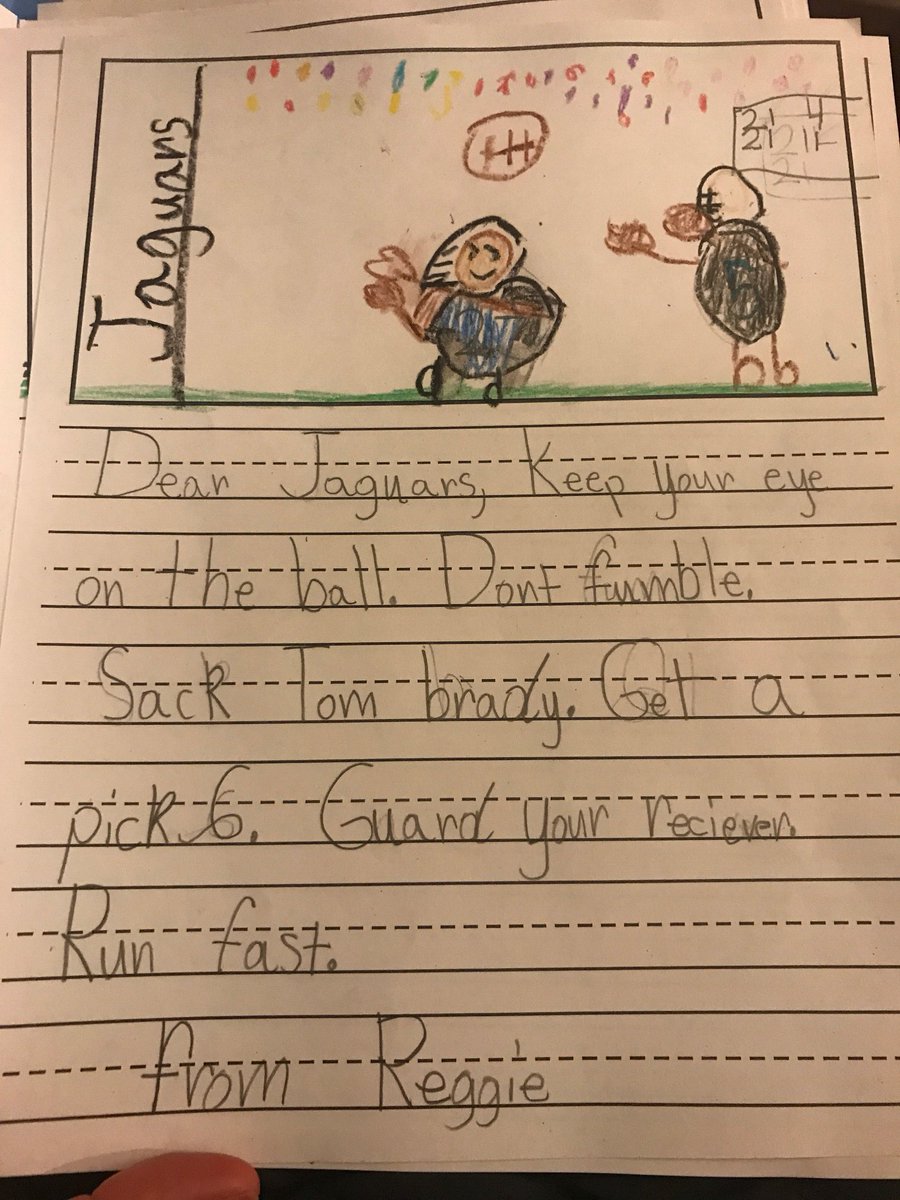 Jaguars
21 4
21 11
Dear Jaguars, Keep your eye
on the ball. Dont fumble.
Sack Tom brady. Get a
pick 6. Guard your reciever.
Run fast.
from Reggie